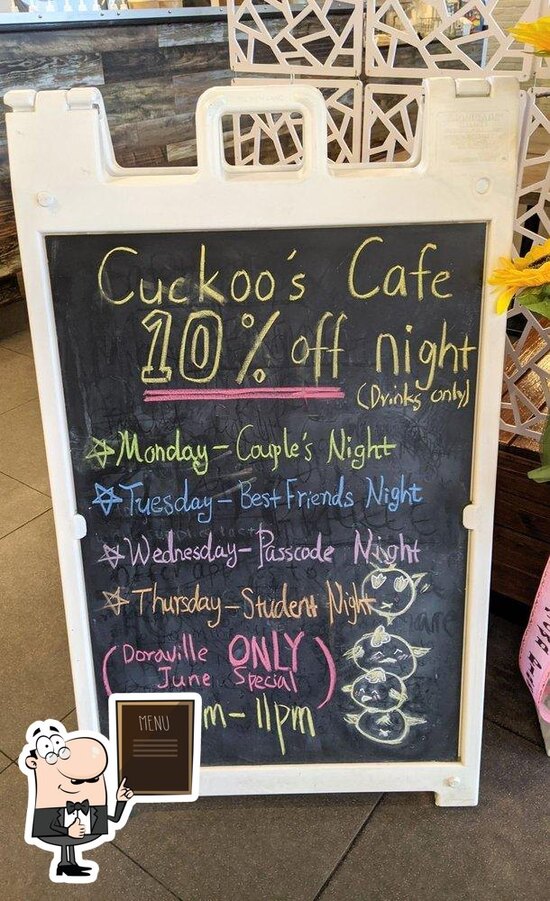 Cuckoo's Cafe
10% off night
(Drinks only)
Monday - Couple's Night
Tuesday - Best Friends Night
Wednesday - Passcode Night
Thursday - Student Night
(Doraville ONLY
June Special)
m - 11pm
MENU